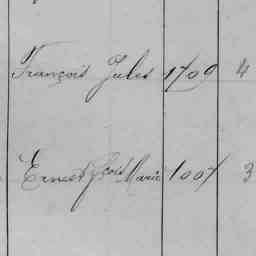 François Jules 1709 4
Ernest fçois Marie 1007 3